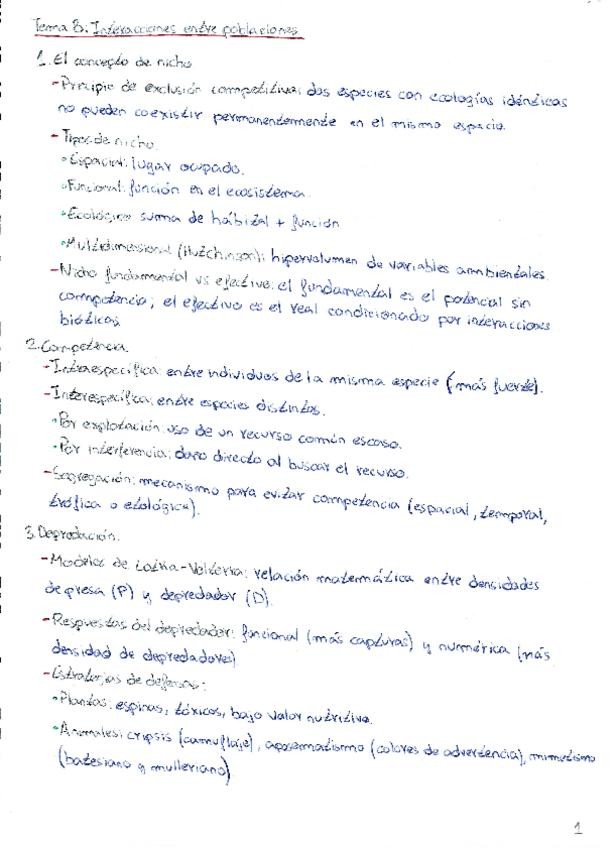 Tema 8: Interacciones entre poblaciones
1. El concepto de nicho
- Principio de exclusión competitiva: dos especies con ecologías idénticas
no pueden coexistir permanentemente en el mismo espacio.
- Tipos de nicho.
• Espacial: lugar ocupado.
• Funcional: función en el ecosistema.
• Ecológico suma de hábitat + función
• Multidimensional (Hutchinson): hipervolumen de variables ambientales.
- Nicho fundamental vs efectivo: el fundamental es el potencial sin
competencia; el efectivo es el real condicionado por interacciones
bióticas.
2. Competencia.
- Intraespecífica: entre individuos de la misma especie (más fuerte).
- Interespecífica: entre especies distintas.
• Por explotación: uso de un recurso común escaso.
• Por interferencia: daño directo al buscar el recurso.
- Segregación: mecanismo para evitar competencia (espacial, temporal,
trófica o etológica).
3. Depredación.
- Modelos de Lotka-Volterra: relación matemática entre densidades
de presa (P) y depredador (D).
- Respuestas del depredador: funcional (más capturas) y numérica (más
densidad de depredadores)
- Estrategias de defensa:
• Plantas: espinas, tóxicos, bajo valor nutritivo.
• Animales: cripsis (camuflaje), aposematismo (colores de advertencia), mimetismo
(batesiano y mulleriano)
1